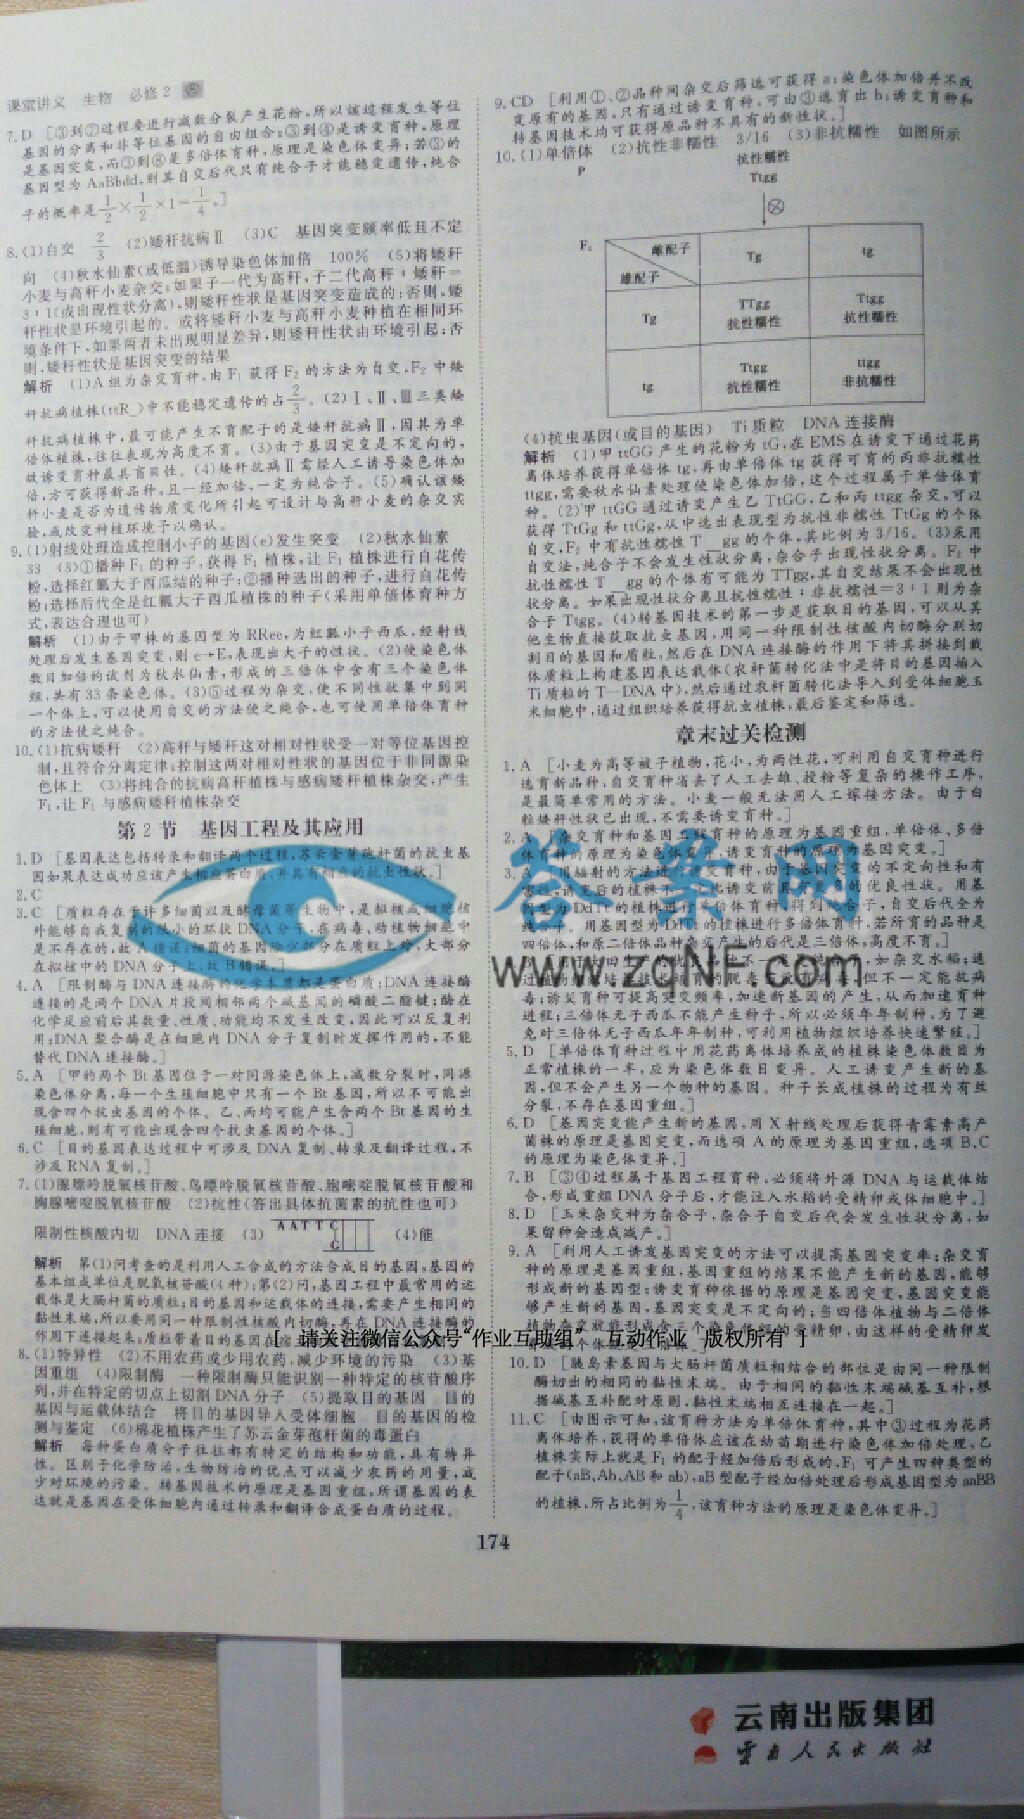 课堂讲义 生物 必修2
7.D [③到⑦过程要进行减数分裂产生花粉,所以该过程发生等位
基因的分离和非等位基因的自由组合;③到④是诱变育种,原理
是基因突变,而③到⑧是多倍体育种,原理是染色体变异;若③的
基因型为AaBbdd,则其自交后代只有纯合子才能稳定遗传,纯合
子的概率是1/2×1/2×1=1/4。]
8.(1)自交 2/3 (2)矮秆抗病Ⅱ (3)C 基因突变频率低且不定
向 (4)秋水仙素(或低温)诱导染色体加倍 100% (5)将矮秆
小麦与高秆小麦杂交;如果子一代为高秆,子二代高秆∶矮秆=
3∶1(或出现性状分离),则矮秆性状是基因突变造成的;否则,矮
秆性状是环境引起的。或将矮秆小麦与高秆小麦种植在相同环
境条件下,如果两者未出现明显差异,则矮秆性状由环境引起;否
则,矮秆性状是基因突变的结果
解析 (1)A组为杂交育种,由F1获得F2的方法为自交,F2中矮
秆抗病植株(ttR_)中不能稳定遗传的占2/3。(2)Ⅰ、Ⅱ、Ⅲ三类矮
秆抗病植株中,最可能产生不育配子的是矮秆抗病Ⅱ,因其为单
倍体植株,往往表现为高度不育。(3)由于基因突变是不定向的,
故诱变育种最具盲目性。(4)矮秆抗病Ⅱ需经人工诱导染色体加
倍,方可获得新品种,且一经加倍,一定为纯合子。(5)确认该矮
秆小麦是否为遗传物质变化所引起可设计与高秆小麦的杂交实
验,或改变种植环境予以确认。
9.(1)射线处理造成控制小子的基因(e)发生突变 (2)秋水仙素
33 (3)①播种F1的种子,获得F1植株,让F1植株进行自花传
粉,选择红瓤大子西瓜结的种子;②播种选出的种子,进行自花传
粉;选择后代全是红瓤大子西瓜植株的种子(采用单倍体育种方
式,表达合理也可)
解析 (1)由于甲株的基因型为RRee,为红瓤小子西瓜,经射线
处理后发生基因突变,则e→E,表现出大子的性状。(2)使染色体
数目加倍的试剂为秋水仙素,形成的三倍体中含有三个染色体
组,共有33条染色体。(3)⑤过程为杂交,使不同性状集中到同
一个体上,可以使用自交的方法使之纯合,也可使用单倍体育种
的方法使之纯合。
10.(1)抗病矮秆 (2)高秆与矮秆这对相对性状受一对等位基因控
制,且符合分离定律;控制这两对相对性状的基因位于非同源染
色体上 (3)将纯合的抗病高秆植株与感病矮秆植株杂交,产生
F1,让F1与感病矮秆植株杂交
第2节 基因工程及其应用
1.D [基因表达包括转录和翻译两个过程,苏云金芽孢杆菌的抗虫基
因如果表达成功应该产生相应蛋白质,并具有相应的抗虫性状。]
2.C
3.C [质粒存在于许多细菌以及酵母菌等生物中,是拟核或细胞核
外能够自我复制的很小的环状DNA分子,在病毒、动植物细胞中
是不存在的,故A错误;细菌的基因除少部分在质粒上外,大部分
在拟核中的DNA分子上,故B错误。]
4.A [限制酶与DNA连接酶的化学本质都是蛋白质;DNA连接酶
连接的是两个DNA片段间相邻两个碱基间的磷酸二酯键;酶在
化学反应前后其数量、性质、功能均不发生改变,因此可以反复利
用;DNA聚合酶是在细胞内DNA分子复制时发挥作用的,不能
替代DNA连接酶。]
5.A [甲的两个Bt基因位于一对同源染色体上,减数分裂时,同源
染色体分离,每一个生殖细胞中只有一个Bt基因,所以不可能出
现含四个抗虫基因的个体。乙、丙均可能产生含两个Bt基因的生
殖细胞,则有可能出现含四个抗虫基因的个体。]
6.C [目的基因表达过程中可涉及DNA复制、转录及翻译过程,不
涉及RNA复制。]
7.(1)腺嘌呤脱氧核苷酸、鸟嘌呤脱氧核苷酸、胞嘧啶脱氧核苷酸和
胸腺嘧啶脱氧核苷酸 (2)抗性(答出具体抗菌素的抗性也可)
限制性核酸内切 DNA连接 (3) AATTC G (4)能
解析 第(1)问考查的是利用人工合成的方法合成目的基因,基因的
基本组成单位是脱氧核苷酸(4种);第(2)问,基因工程中最常用的运
载体是大肠杆菌的质粒;目的基因和运载体的连接,需要产生相同的
黏性末端,所以要用同一种限制性核酸内切酶,再在DNA连接酶的
作用下连接起来;质粒带着目的基因
[ 请关注微信公众号“作业互助组” 互动作业 版权所有 ]
8.(1)特异性 (2)不用农药或少用农药,减少环境的污染 (3)基
因重组 (4)限制酶 一种限制酶只能识别一种特定的核苷酸序
列,并在特定的切点上切割DNA分子 (5)提取目的基因 目的
基因与运载体结合 将目的基因导入受体细胞 目的基因的检
测与鉴定 (6)棉花植株产生了苏云金芽孢杆菌的毒蛋白
解析 每种蛋白质分子往往都有特定的结构和功能,具有特异
性。区别于化学防治,生物防治的优点可以减少农药的用量,减
少对环境的污染。转基因技术的原理是基因重组,所谓基因的表
达就是基因在受体细胞内通过转录和翻译合成蛋白质的过程。
9.CD [利用①、②品种间杂交后筛选可获得a;染色体加倍并不改
变原有的基因,只有通过诱变育种,可由③选育出b;诱变育种和
转基因技术均可获得原品种不具有的新性状。]
10.(1)单倍体 (2)抗性非糯性 3/16 (3)非抗糯性 如图所示
P 抗性糯性
Ttgg
⊗
F1 雌配子 Tg tg
雄配子
Tg TTgg 抗性糯性 Ttgg 抗性糯性
tg Ttgg 抗性糯性 ttgg 非抗糯性
(4)抗虫基因(或目的基因) Ti质粒 DNA连接酶
解析 (1)甲ttGG产生的花粉为tG,在EMS在诱变下通过花药
离体培养获得单倍体tg,再由单倍体tg获得可育的丙非抗糯性
ttgg,需要秋水仙素处理使染色体加倍,这个过程属于单倍体育
种。(2)甲ttGG通过诱变产生乙TtGG,乙和丙ttgg杂交,可以
获得TtGg和ttGg,从中选出表现型为抗性非糯性TtGg的个体
自交,F2中有抗性糯性T_gg的个体,其比例为3/16。(3)采用
自交法,纯合子不会发生性状分离,杂合子出现性状分离。F2中
抗性糯性T_gg的个体有可能为TTgg,其自交结果不会出现性
状分离。如果出现性状分离且抗性糯性∶非抗糯性=3∶1则为杂
合子Ttgg。(4)转基因技术的第一步是获取目的基因,可以从其
他生物直接获取抗虫基因,用同一种限制性核酸内切酶分别切
割目的基因和质粒,然后在DNA连接酶的作用下将其拼接到载
体质粒上构建基因表达载体(农杆菌转化法中是将目的基因插入
Ti质粒的T—DNA中),然后通过农杆菌转化法导入到受体细胞玉
米细胞中,通过组织培养获得抗虫植株,最后鉴定和筛选。
章末过关检测
1.A [小麦为高等被子植物,花小,为两性花,可利用自交育种进行
选育新品种,自交育种省去了人工去雄、授粉等复杂的操作工序,
是最简单常用的方法。小麦一般无法用人工嫁接方法。由于白
粒矮秆性状已出现,不需要诱变育种。]
2.A [杂交育种和基因工程育种的原理为基因重组,单倍体、多倍
体育种的原理为染色体变异,诱变育种的原理为基因突变。]
3.A [用辐射的方法进行诱变育种,由于基因突变的不定向性和有
害性,诱变后的植株不一定比诱变前具有更多的优良性状。用基
因型为DdTt的植株进行单倍体育种,得到纯合子,自交后代全为
纯合子。用基因型为DdTt的植株进行多倍体育种,若所育的品种是
四倍体,和原二倍体品种杂交产生的后代是三倍体,高度不育。]
毒;诱变育种可提高突变频率,加速新基因的产生,从而加速育种
进程;三倍体无子西瓜不能产生种子,所以必须年年制种,为了避
免对三倍体无子西瓜年年制种,可利用植物组织培养快速繁殖。]
5.D [单倍体育种过程中用花药离体培养成的植株染色体数目为
正常植株的一半,应为染色体数目变异。人工诱变产生新的基
因,但不会产生另一个物种的基因。种子长成植株的过程为有丝
分裂,不存在基因重组。]
6.D [基因突变能产生新的基因,用X射线处理后获得青霉素高产
菌株的原理是基因突变,而选项A的原理为基因重组,选项B、C
的原理为染色体变异。]
7.B [③④过程属于基因工程育种,必须将外源DNA与运载体结
合,形成重组DNA分子后,才能注入水稻的受精卵或体细胞中。]
8.D [玉米杂交种为杂合子,杂合子自交后代会发生性状分离,如
果留种会造成减产。]
9.A [利用人工诱发基因突变的方法可以提高基因突变率;杂交育
种的原理是基因重组,基因重组的结果不能产生新的基因,能够
形成新的基因型;诱变育种依据的原理是基因突变,基因突变能
够产生新的基因,基因突变是不定向的;当四倍体植物与二倍体
植物杂交就能形成含三个染色体组的受精卵,由这样的受精卵发
10.D [胰岛素基因与大肠杆菌质粒相结合的部位是由同一种限制
酶切出的相同的黏性末端。由于相同的黏性末端碱基互补,根
据碱基互补配对原则,黏性末端相互连接在一起。]
11.C [由图示可知,该育种方法为单倍体育种,其中③过程为花药
离体培养,获得的单倍体应该在幼苗期进行染色体加倍处理,乙
植株实际上就是F1的配子经加倍后形成的,F1可产生四种类型的
配子(aB、Ab、AB和ab),aB型配子经加倍处理后形成基因型为aaBB
的植株,所占比例为1/4,该育种方法的原理是染色体变异。]
答案网
www.zqNF.com
174
云南出版集团
云南人民出版社